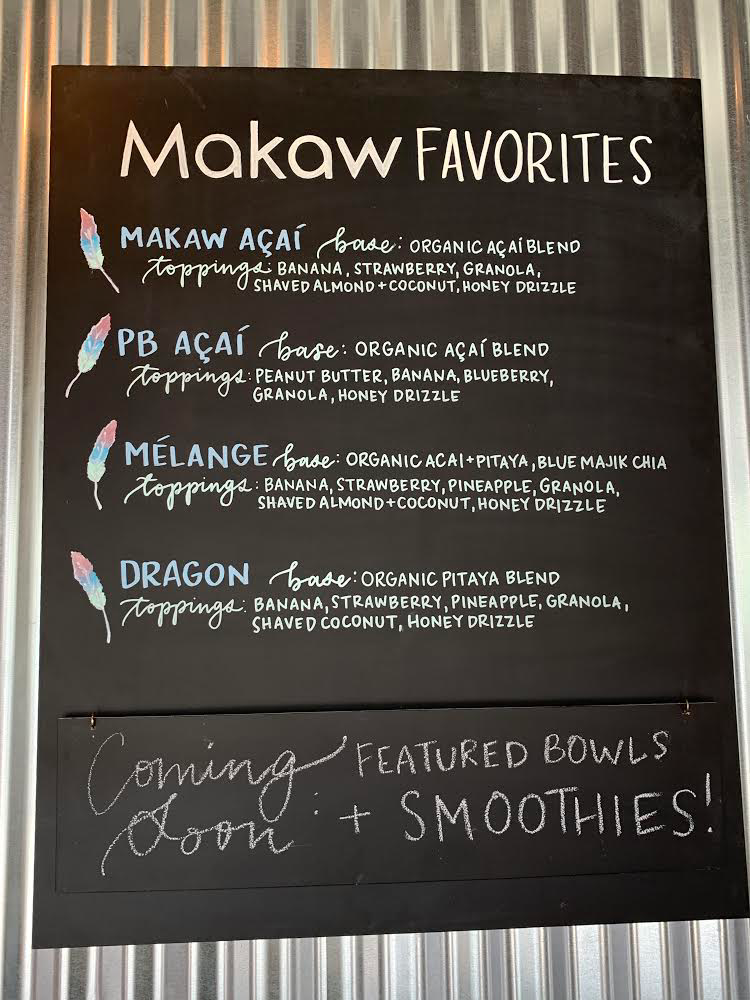 Makaw FAVORITES
MAKAW AÇAÍ base: ORGANIC AÇAÍ BLEND
toppings: BANANA, STRAWBERRY, GRANOLA,
SHAVED ALMOND + COCONUT, HONEY DRIZZLE
PB AÇAÍ base: ORGANIC AÇAÍ BLEND
toppings: PEANUT BUTTER, BANANA, BLUEBERRY,
GRANOLA, HONEY DRIZZLE
MÉLANGE base: ORGANIC ACAI + PITAYA, BLUE MAJIK CHIA
toppings: BANANA, STRAWBERRY, PINEAPPLE, GRANOLA,
SHAVED ALMOND + COCONUT, HONEY DRIZZLE
DRAGON base: ORGANIC PITAYA BLEND
toppings: BANANA, STRAWBERRY, PINEAPPLE, GRANOLA,
SHAVED COCONUT, HONEY DRIZZLE
Coming FEATURED BOWLS
Soon: + SMOOTHIES!